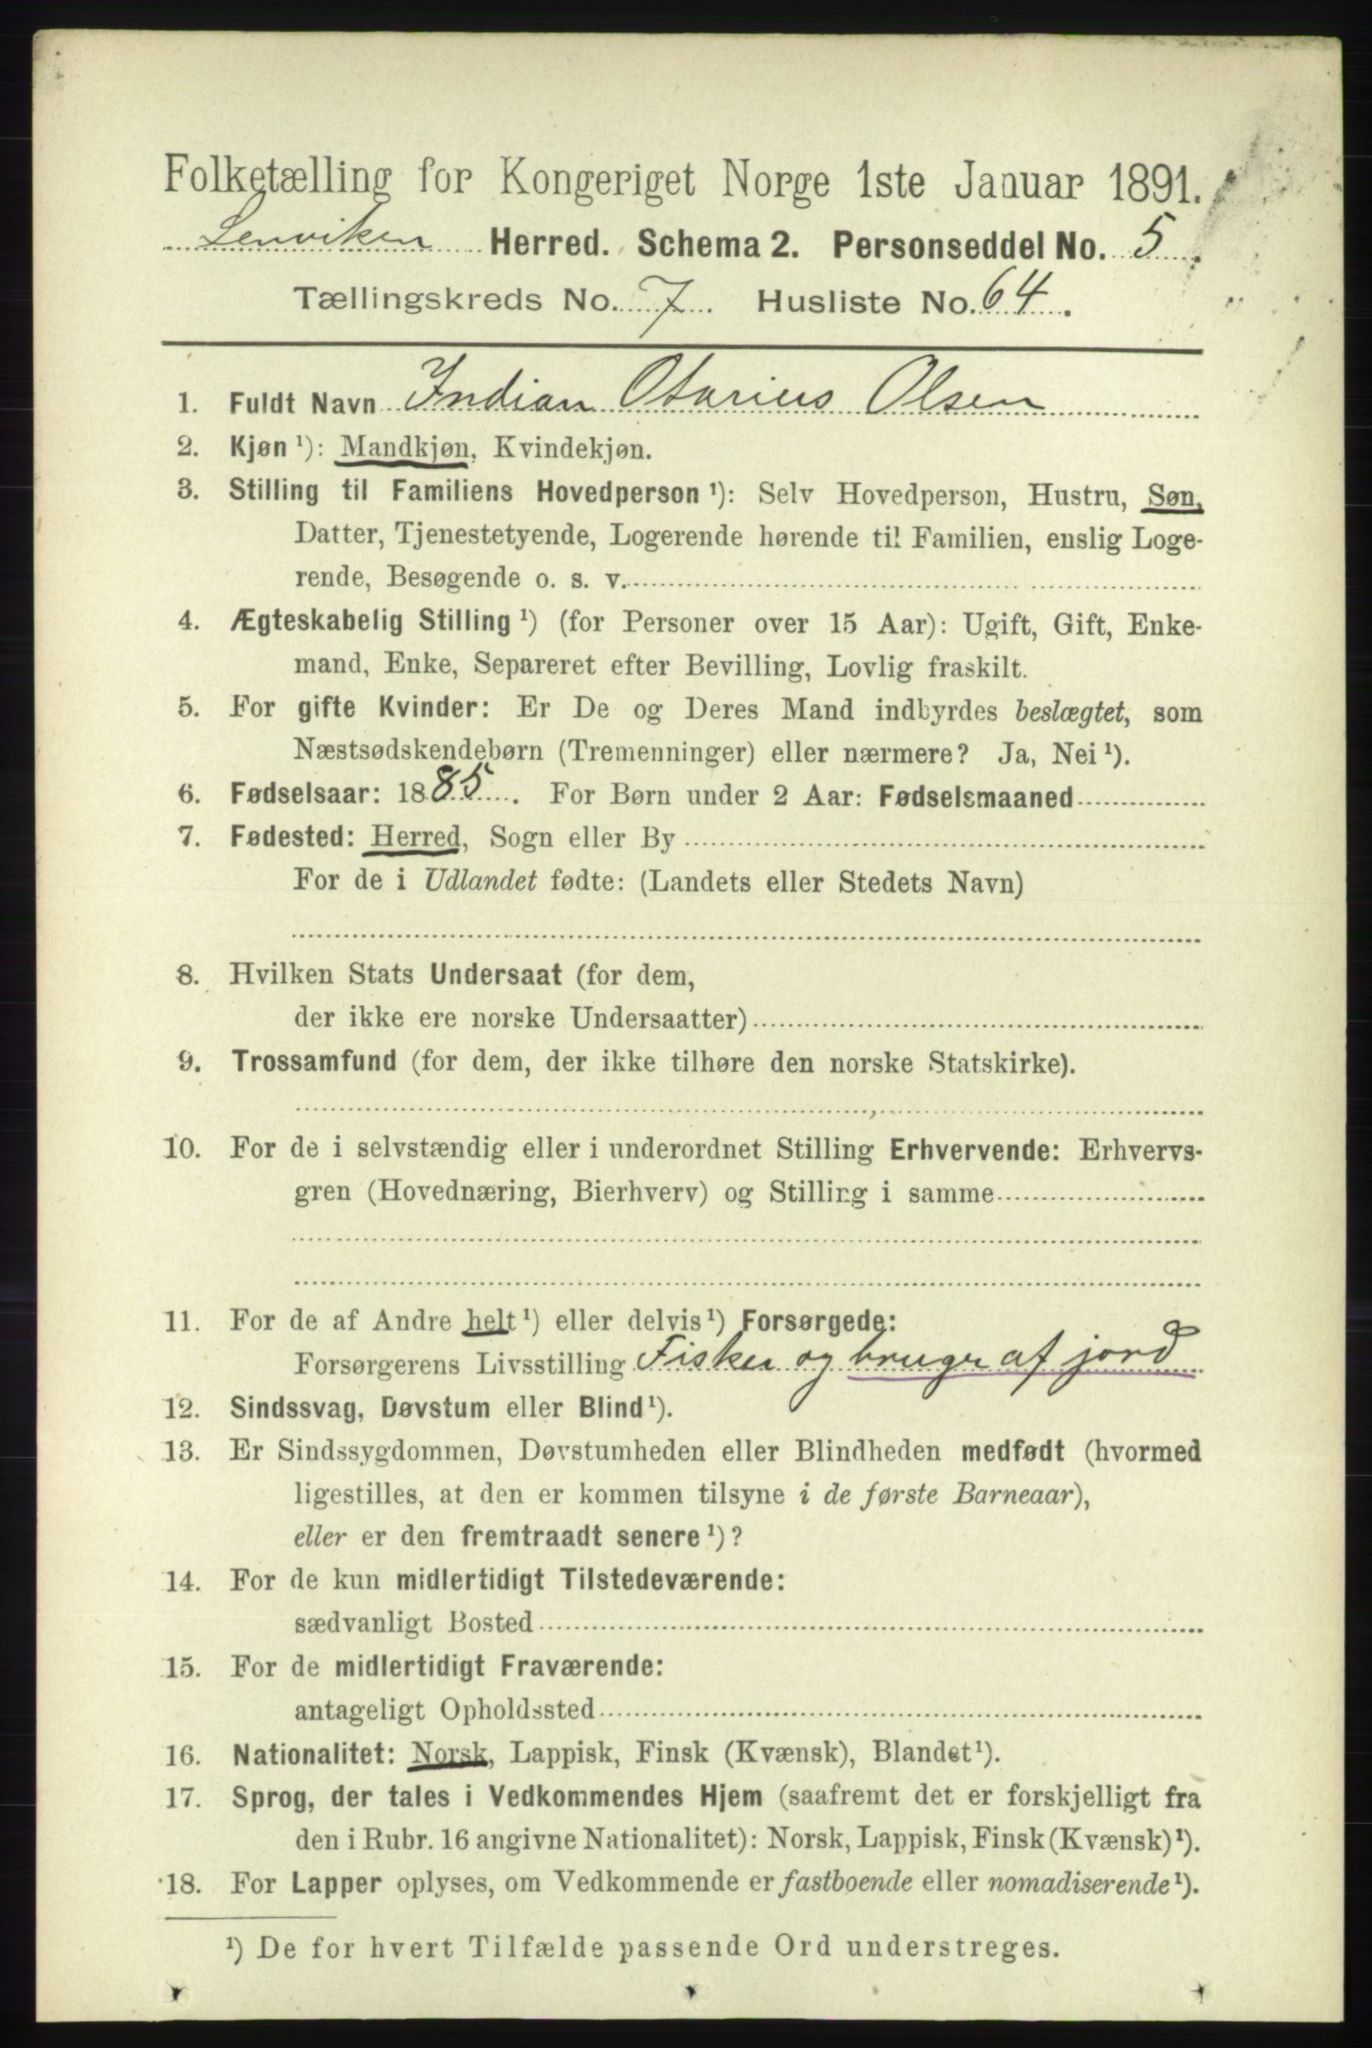 Folketælling for Kongeriget Norge 1ste Januar 1891.
Lenviken Herred. Schema 2. Personseddel No. 5.
Tællingskreds No. 7. Husliste No. 64.
1. Fuldt Navn Indian Otarius Olsen
2. Kjøn ¹): Mandkjøn, Kvindekjøn.
3. Stilling til Familiens Hovedperson ¹): Selv Hovedperson, Hustru, Søn,
Datter, Tjenestetyende, Logerende hørende til Familien, enslig Loge-
rende, Besøgende o. s. v.
4. Ægteskabelig Stilling ¹) (for Personer over 15 Aar): Ugift, Gift, Enke-
mand, Enke, Separeret efter Bevilling, Lovlig fraskilt.
5. For gifte Kvinder: Er De og Deres Mand indbyrdes beslægtet, som
Næstsødskendebørn (Tremenninger) eller nærmere? Ja, Nei ¹).
6. Fødselsaar: 1885. For Børn under 2 Aar: Fødselsmaaned
7. Fødested: Herred, Sogn eller By
For de i Udlandet fødte: (Landets eller Stedets Navn)
8. Hvilken Stats Undersaat (for dem,
der ikke ere norske Undersaatter)
9. Trossamfund (for dem, der ikke tilhøre den norske Statskirke).
10. For de i selvstændig eller i underordnet Stilling Erhvervende: Erhvervs-
gren (Hovednæring, Bierhverv) og Stilling i samme
11. For de af Andre helt ¹) eller delvis ¹) Forsørgede:
Forsørgerens Livsstilling Fisker og bruger af jord
12. Sindssvag, Døvstum eller Blind ¹).
13. Er Sindssygdommen, Døvstumheden eller Blindheden medfødt (hvormed
ligestilles, at den er kommen tilsyne i de første Barneaar),
eller er den fremtraadt senere ¹)?
14. For de kun midlertidigt Tilstedeværende:
sædvanligt Bosted
15. For de midlertidigt Fraværende:
antageligt Opholdssted
16. Nationalitet: Norsk, Lappisk, Finsk (Kvænsk), Blandet ¹).
17. Sprog, der tales i Vedkommendes Hjem (saafremt det er forskjelligt fra
den i Rubr. 16 angivne Nationalitet): Norsk, Lappisk, Finsk (Kvænsk) ¹).
18. For Lapper oplyses, om Vedkommende er fastboende eller nomadiserende ¹).
¹) De for hvert Tilfælde passende Ord understreges.